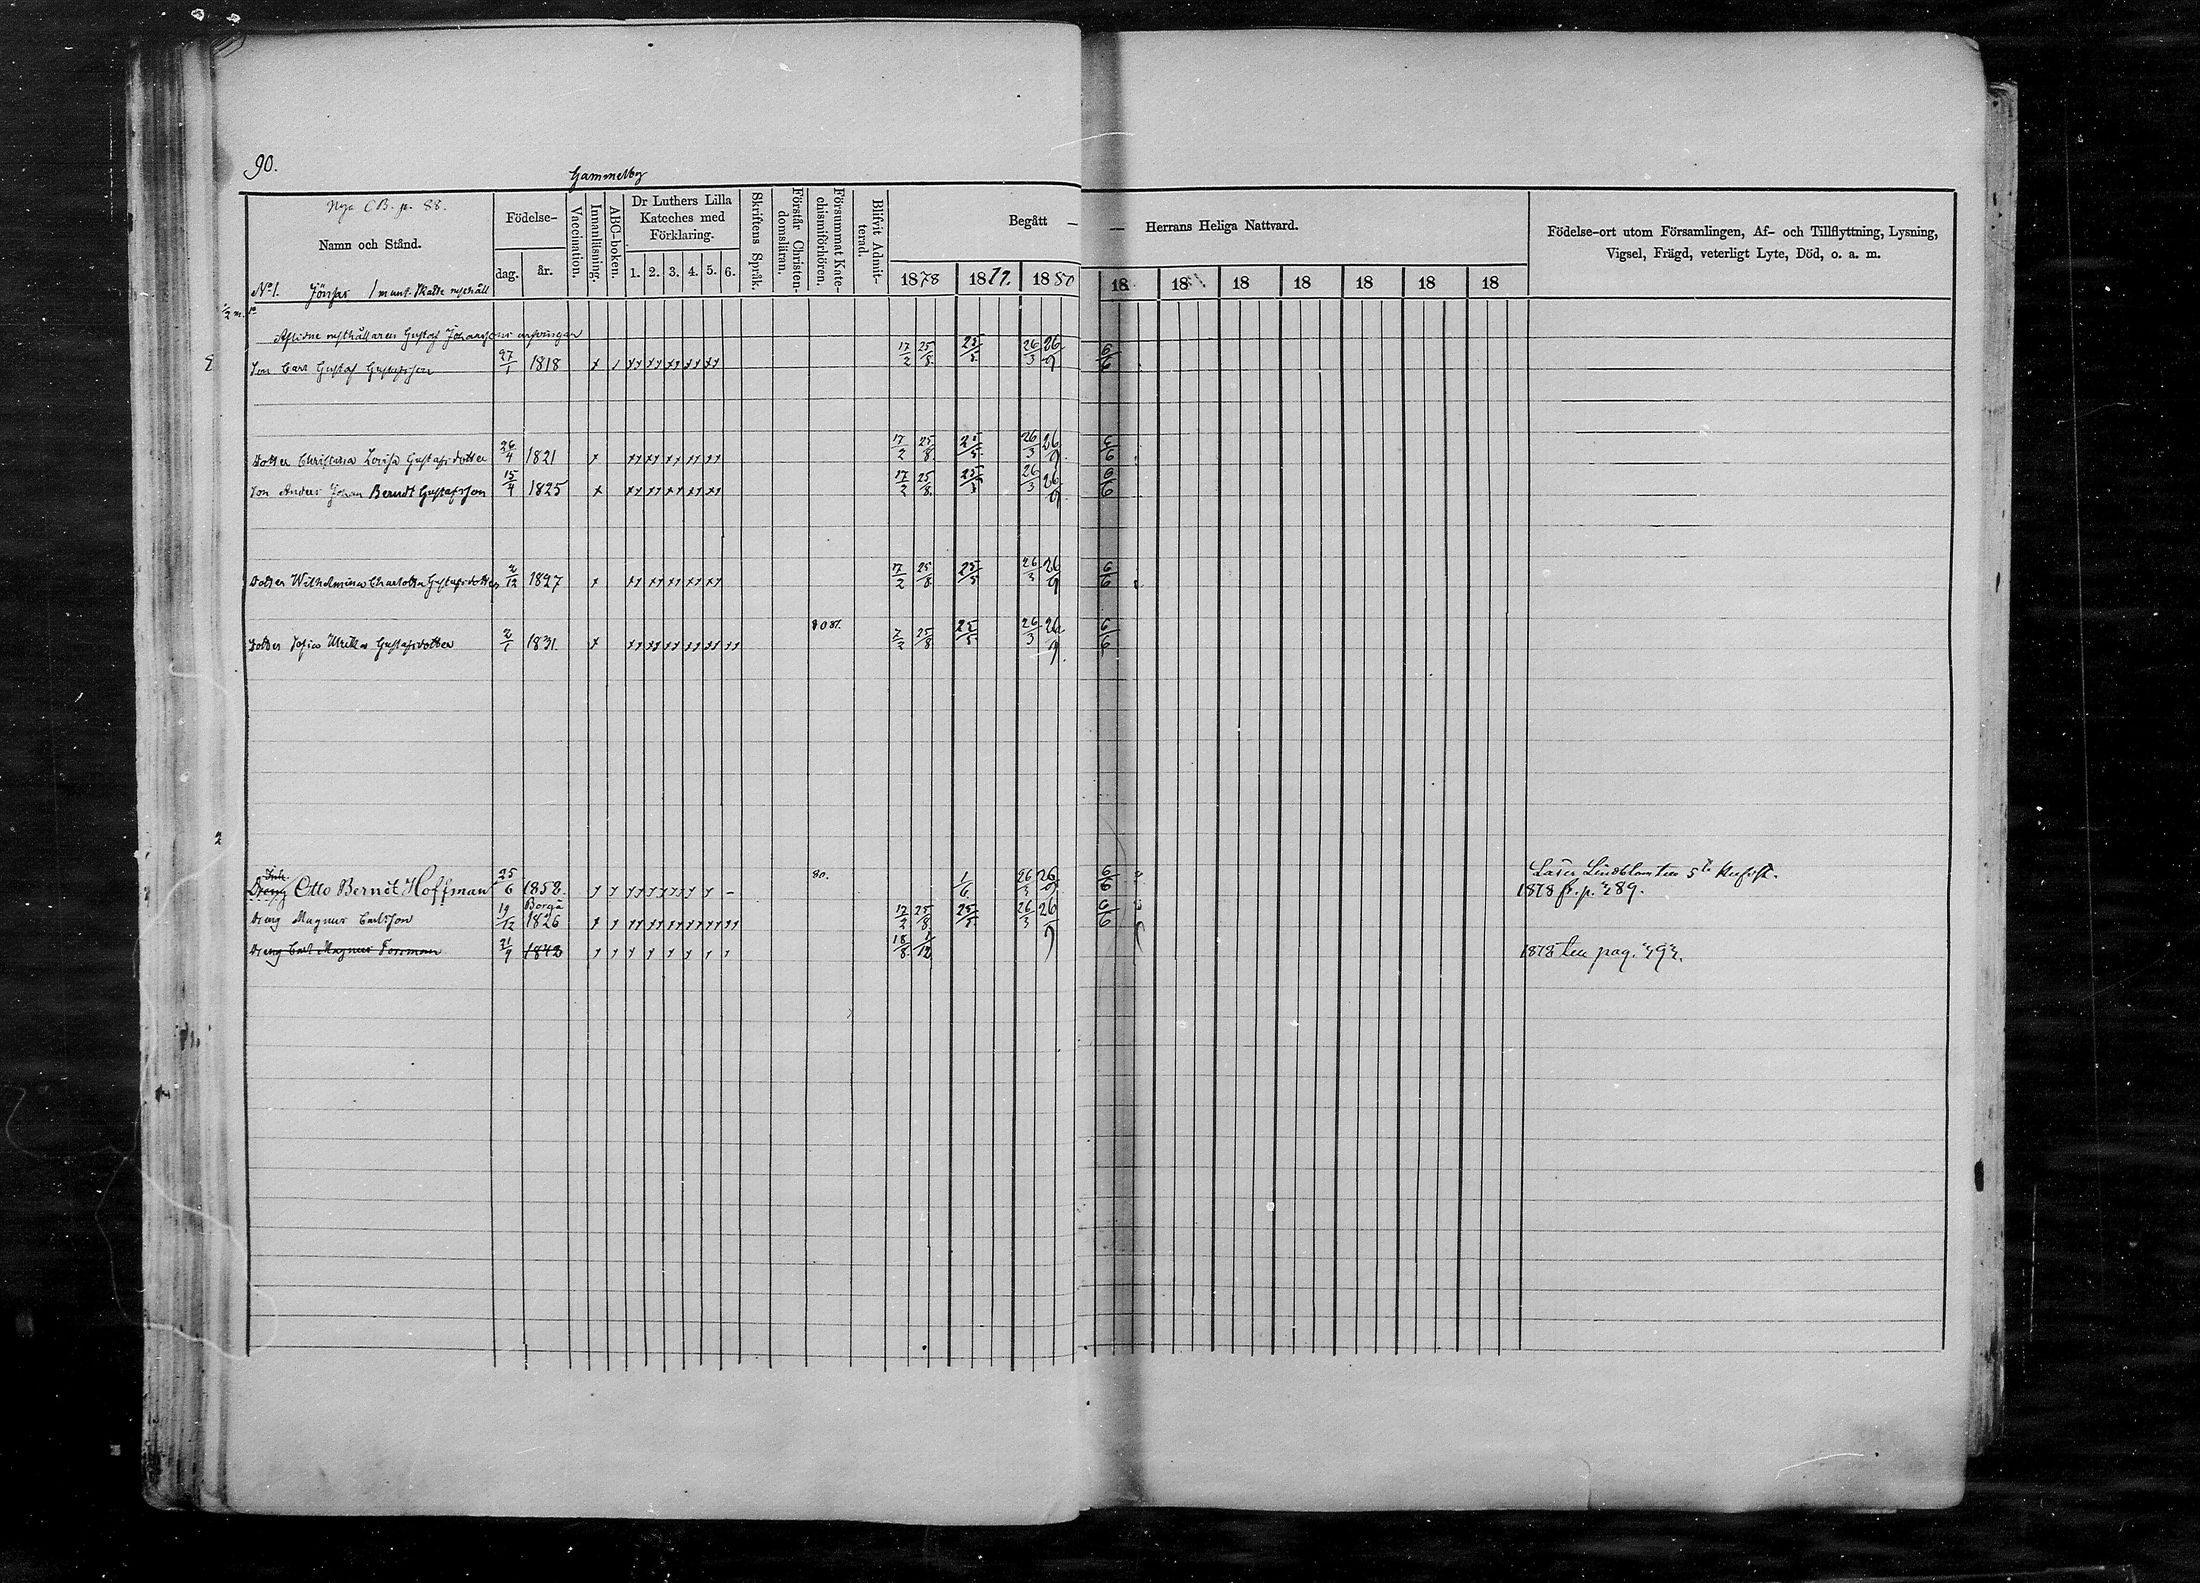 90.
Gammelby
Nya CB. p. 88.
Namn och Stånd.
Födelse-
dag.
år.
Vaccination.
Innanläsning.
ABC-boken.
Dr Luthers Lilla
Kateches med
Förklaring.
1. 2. 3. 4. 5. 6.
Skriftens Språk.
Förstår Christen-
domsläran.
Försummat Kate-
chismiförhören.
Blifvit Admit-
terad.
Begått —
— Herrans Heliga Nattvard.
1878 1879. 1880 18 18 18 18 18 18 18
Födelse-ort utom Församlingen, Af- och Tillflyttning, Lysning,
Vigsel, Frägd, veterligt Lyte, Död, o. a. m.
No 1. Jönsas 1 mant. Skatte rusthåll
Aflidne rusthållaren Gustaf Johanssons arfvingar
Son Carl Gustaf Gustafsson 27/1 1818 17/2 25/8 25/5 26/3 26/9 6/6
Dotter Christina Lovisa Gustafsdotter 26/4 1821 17/2 25/8 25/5 26/3 26/9 6/6
Son Anders Johan Berndt Gustafsson 15/4 1825 17/2 25/8 25/5 26/3 26/9 6/6
Dotter Wilhelmina Charlotta Gustafsdotter 2/12 1827 17/2 25/8 25/5 26/3 26/9 6/6
Dotter Sofia Ulrika Gustafsdotter 2/1 1831 80 81. 7/2 25/8 25/5 26/3 26/9 6/6
Inh.
Dreng Otto Berndt Hoffman 25/6 1858. 80. 1/6 26/3 26/9 6/6 1878 fr. p. 289.
Borgå
Dreng Magnus Carlsson 19/12 1826 17/2 25/8 25/5 26/3 26/9 6/6
Dreng Carl Magnus Forsman 21/9 1842 18/8 1/12 1878 till pag. 292.